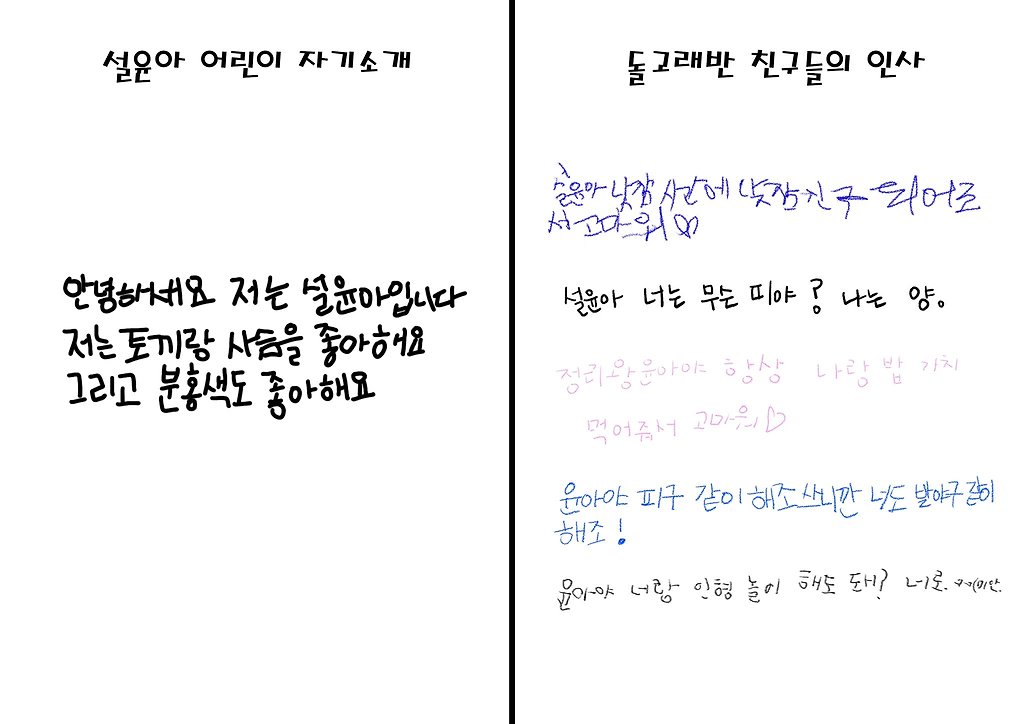 설윤아 어린이 자기소개
안녕하세요 저는 설윤아입니다
저는 토끼랑 사슴을 좋아해요
그리고 분홍색도 좋아해요
돌고래반 친구들의 인사
설윤아 낮잠 시간에 낮잠 친구 되어조
서 고마워♡
설윤아 너는 무슨 띠야? 나는 양.
정리왕윤아야 항상 나랑 밥 가치
먹어줘서 고마워♡
윤아야 피구 같이 해조쓰니깐 너도 발야구 같이
해조!
윤아야 너랑 인형 놀이 해도 돼?